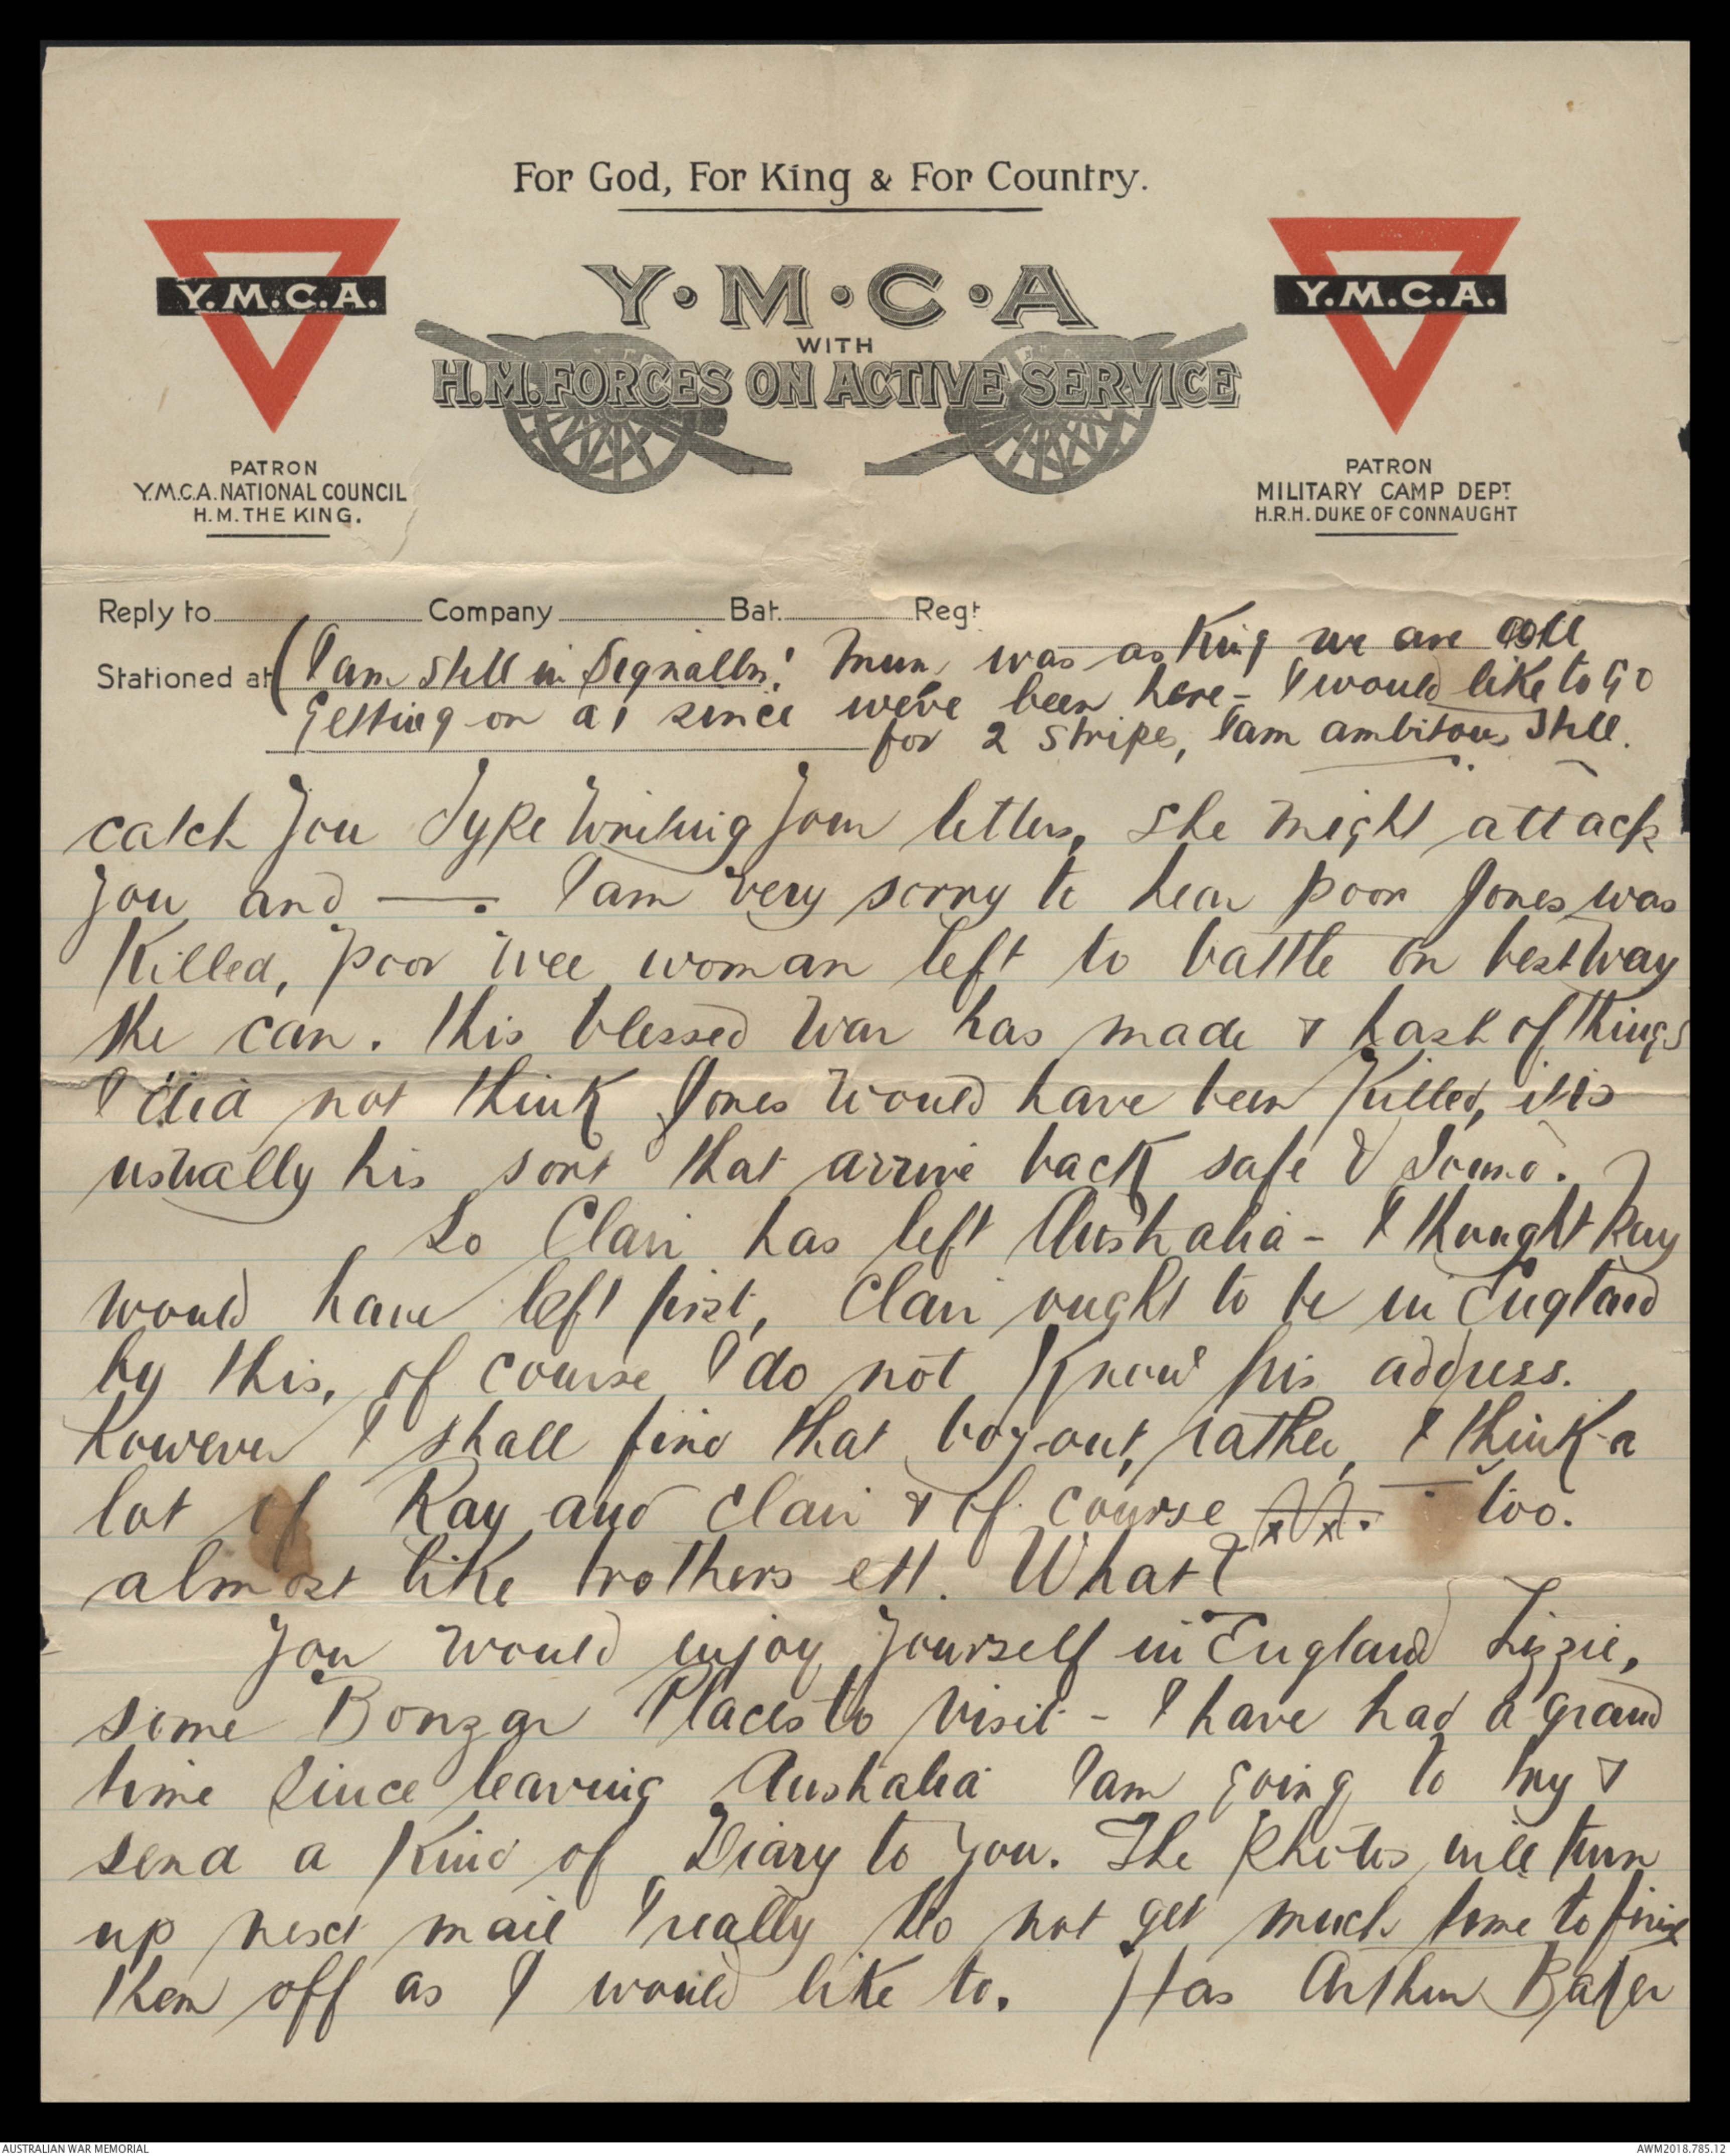 For God, For King & For Country.
Y.M.C.A.
Y.M.C.A
WITH
H.M. FORCES ON ACTIVE SERVICE
Y.M.C.A.
PATRON
Y.M.C.A. NATIONAL COUNCIL
H.M. THE KING.
PATRON
MILITARY CAMP DEPT
H.R.H. DUKE OF CONNAUGHT
Reply to Company Bat. Regt
Stationed at (I am still in Signallers! Mum, was asking we are all
getting on a1 since we've been here - I would like to go
for 2 stripes, I am ambitous still.
catch you Type Writing your letters, she might attack
you and —. I am very sorry to hear poor Jones was
Killed, poor wee woman left to battle on best way
she can. This blessed War has made a hash of things
I did not think Jones would have been killed, it is
usually his sort that arrive back safe & Sound.
So Clair has left Australia - I thought Ray
would have left first, Clair ought to be in England
by this, of course I do not know his address.
however I shall find that boy out, rather, I think a
lot of Ray and Clair & of course too.
almost like brothers eh. What?
You would enjoy yourself in England Lizzie,
some Bonzar Places to visit - I have had a grand
time since leaving Australia I am going to try &
send a Kind of Diary to you. The Photos will turn
up next mail I really do not get much time to finish
them off as I would like to. Has Arthur Baker
AUSTRALIAN WAR MEMORIAL
AWM2018.785.12